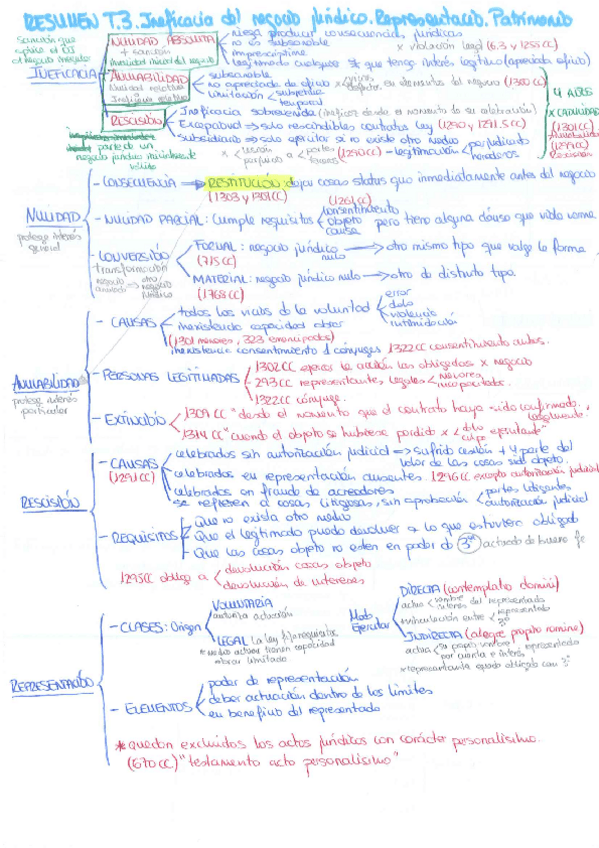 RESUMEN T.3. Ineficacia del negocio jurídico. Representación. Patrimonio
INEFICACIA
NULIDAD ABSOLUTA
+ sanción
niega producir consecuencias jurídicas
no es subsanable
imprescriptible
x violación legal (6.3 y 1255 CC)
legitimado cualquiera * que tenga interés legítimo (apreciada oficio)
ANULABILIDAD
Nulidad relativa
subsanable
no apreciada de oficio
x vicios defectos en elementos del negocio (1300 CC)
limitación
subjetiva
temporal
4 AÑOS
x CADUCIDAD
(1301 CC)
(1299 CC)
Rescisión
RESCISIÓN
parte de un negocio jurídico inicialmente válido
Ineficacia sobrevenida (ineficaz desde el momento de su celebración)
Excepcional => solo rescindibles contratos ley (1290 y 1291.5 CC)
subsidiario => solo ejercitar si no existe otro medio
* lesión perjuicio a partes terceros (1290 CC) - legitimación
perjudicado
herederos
NULIDAD
protege interés general
- CONSECUENCIA → RESTITUCIÓN: dejar cosas status quo inmediatamente antes del negocio
(1303 y 1307 CC)
- NULIDAD PARCIAL: Cumple requisitos
(1261 CC)
consentimiento
objeto
causa
pero tiene alguna cláusula que vulnera norma
- CONVERSIÓN
transformación
negocio anulado → otro negocio jurídico
FORMAL: negocio jurídico nulo → otro mismo tipo que valga la forma
(715 CC)
MATERIAL: negocio jurídico nulo → otro de distinto tipo.
(1768 CC)
ANULABILIDAD
protege interés particular
- CAUSAS
todos los vicios de la voluntad
error
dolo
violencia
intimidación
inexistencia capacidad obrar
(1301 menores, 323 emancipados)
inexistencia consentimiento d cónyuges 1322 CC consentimiento ambos.
- PERSONAS LEGITIMADAS
1302 CC ejercer la acción los obligados x negocio
293 CC representantes legales
menores
incapacitados.
1322 CC cónyuge.
- EXTINCIÓN
1309 CC "desde el momento que el contrato haya sido confirmado válidamente."
1314 CC "cuando el objeto se hubiese perdido x dolo culpa
RESCISIÓN
- CAUSAS
(1291 CC)
celebrados sin autorización judicial => sufrido lesión + 4 parte del valor de las cosas sido objeto.
celebrados en representación ausentes. 1296 CC excepto autorización judicial
celebrados en fraude de acreedores
se refieren a cosas litigiosas, sin aprobación
partes litigantes
autorización judicial
- REQUISITOS
Que no exista otro medio
Que el legitimado pueda devolver a lo que estuviera obligado
Que las cosas objeto no esten en poder de 3º actuado de buena fe
1295 CC obliga a
devolución cosas objeto
devolución de intereses
REPRESENTACIÓN
- CLASES: Origen
VOLUNTARIA
autoriza actuación
LEGAL La ley fija requisitos
* no deben actuar tienen capacidad obrar limitada
Modo Ejecutar
DIRECTA (contemplatio domini)
actua
nombre
interés del representado
vinculación entre
representado
3º
INDIRECTA (alegre propio nomine)
actua
su propio nombre
por cuenta e interés representado
* representante queda obligado con 3º
- ELEMENTOS
poder de representación
deber actuación dentro de los límites
en beneficio del representado
* quedan excluidos los actos jurídicos con carácter personalísimo.
(670 CC) "testamento acto personalísimo"